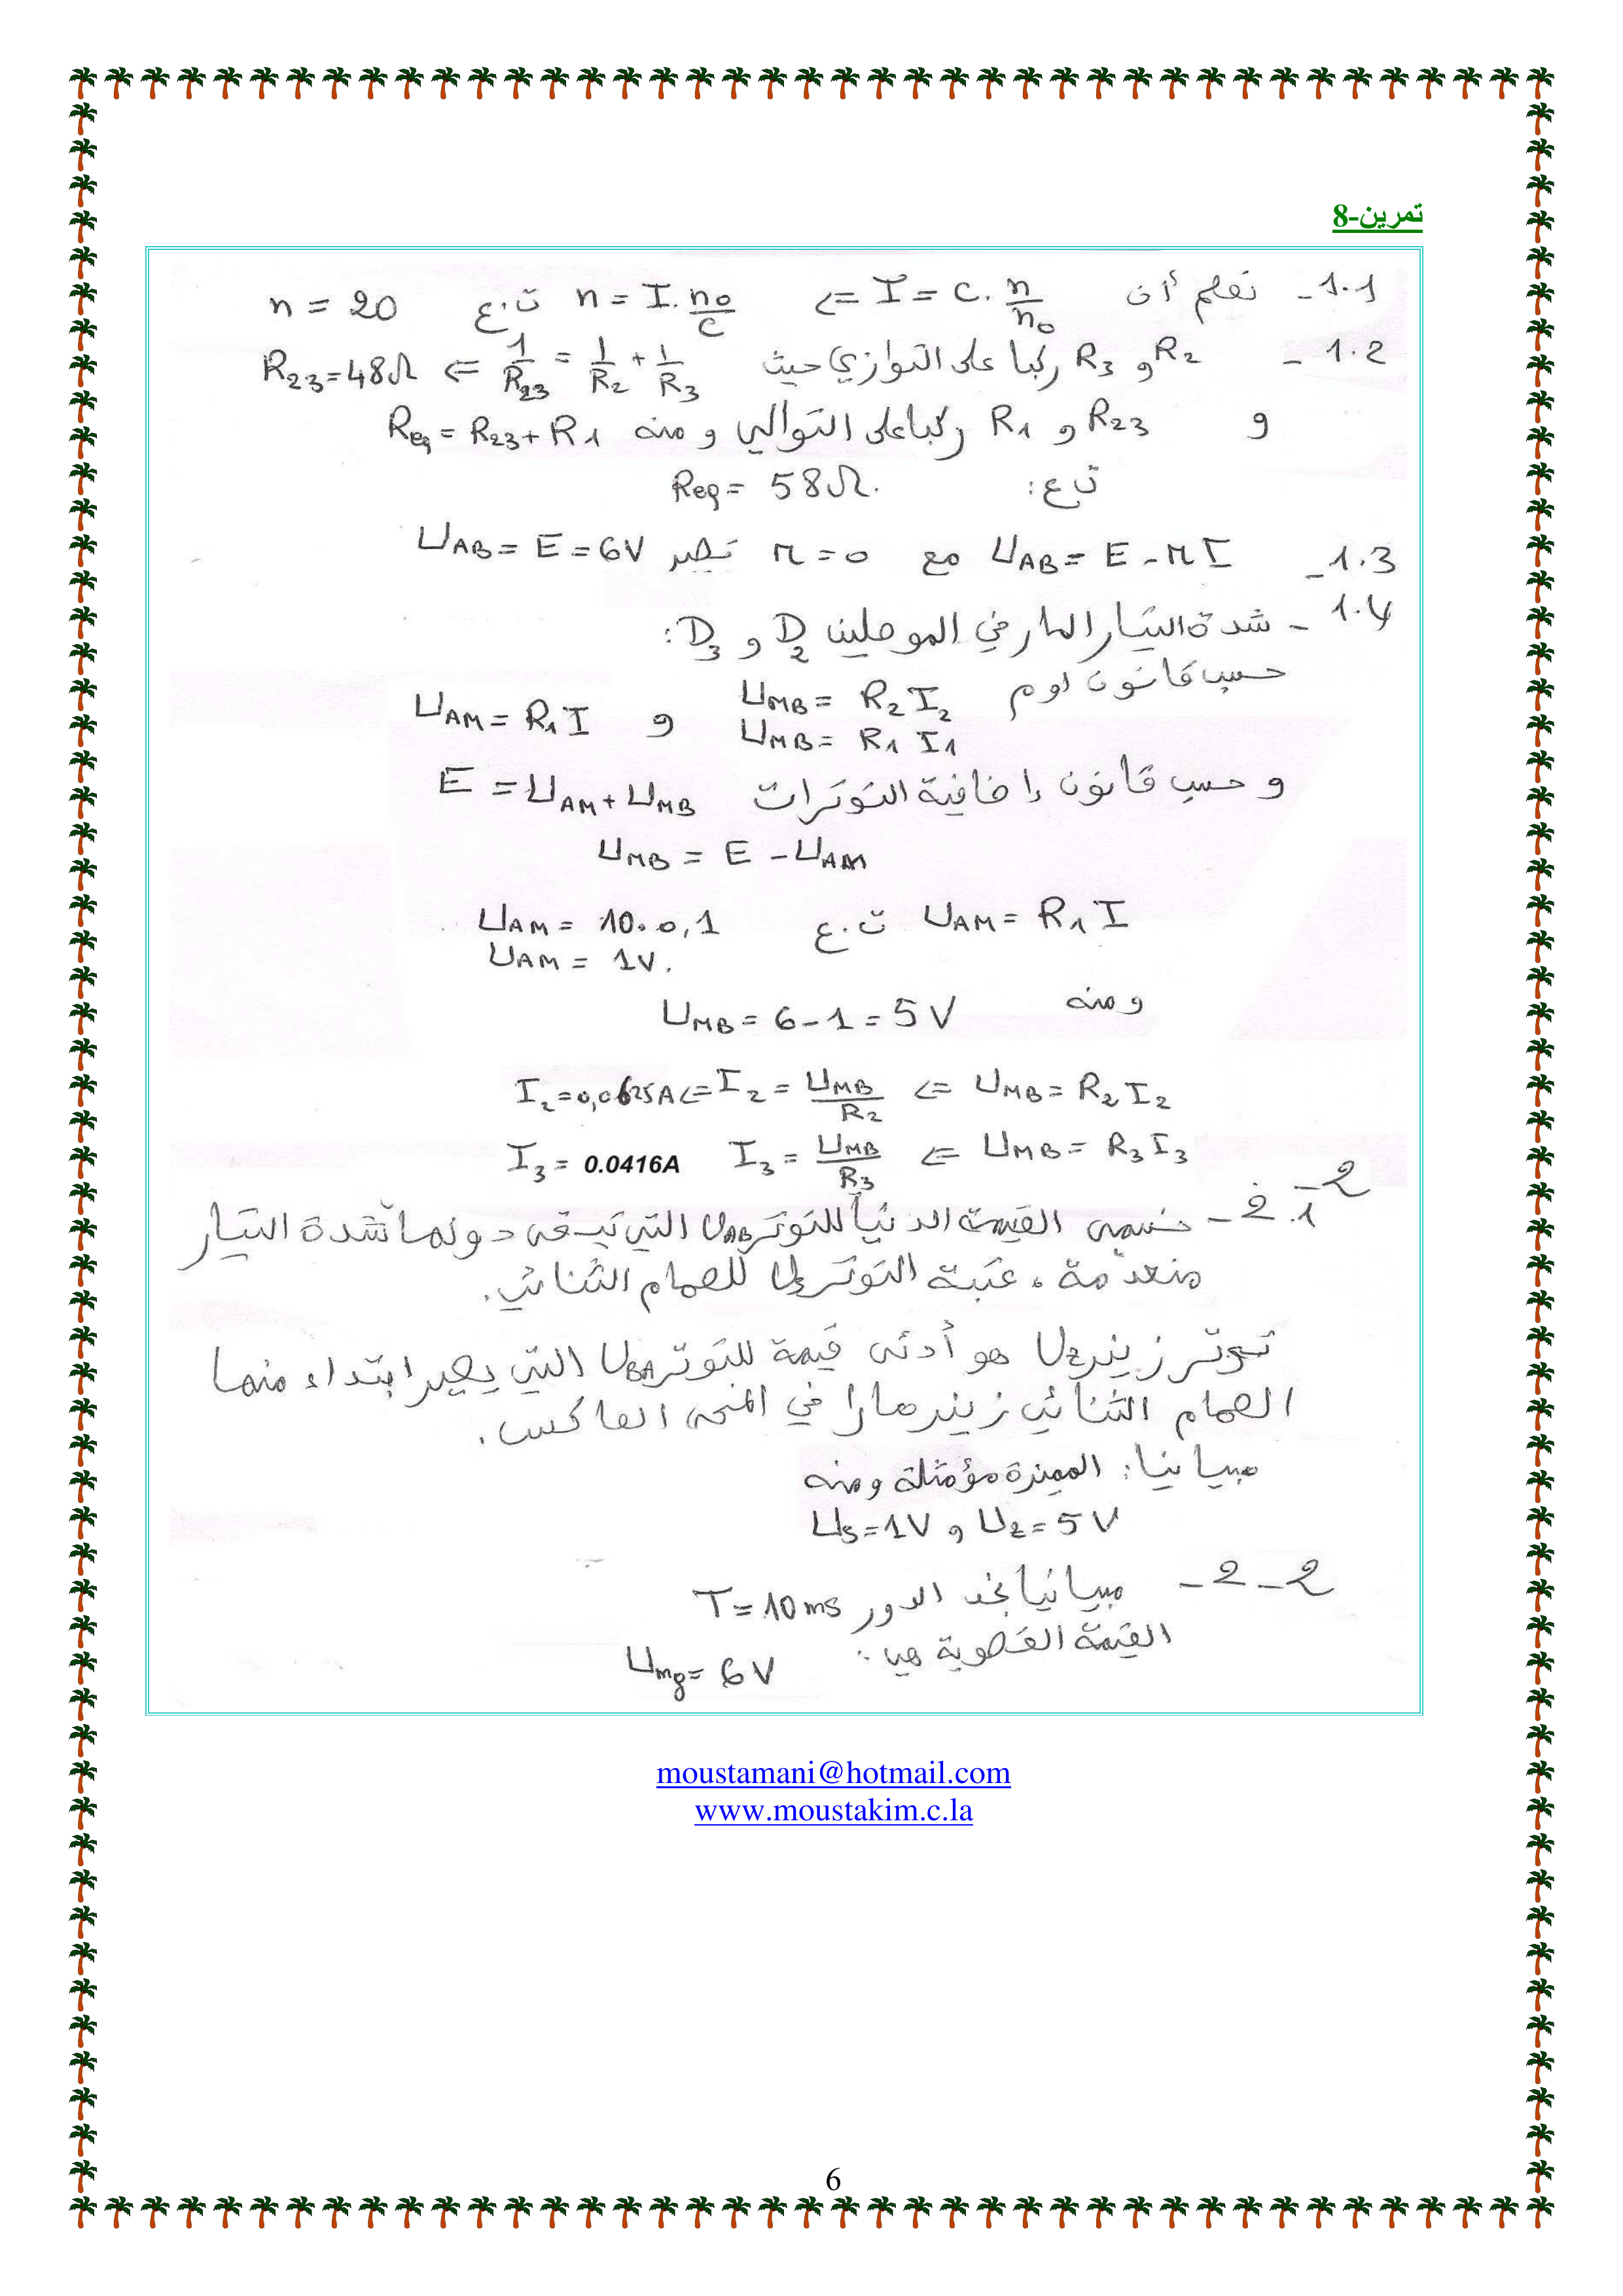 تمرين-8
1.1- نعلم أن I = C. n/n₀ <= n = I. n₀/C ت.ع n = 20
1.2 - R₂ و R₃ ركبا على التوازي حيث 1/R₂₃ = 1/R₂ + 1/R₃ => R₂₃=48Ω
و R₂₃ و R₁ ركبا على التوالي ومنه Req = R₂₃+R₁
ت ع: Req = 58Ω.
1.3- U_AB = E - rI مع r = 0 تصير U_AB = E = 6V
1.4 - شدة التيار المار في الموصلين D₂ و D₃:
حسب قانون اوم U_MB = R₂I₂ و U_AM = R₁I
U_MB = R₁ I₁
و حسب قانون إضافية التوترات E = U_AM + U_MB
U_MB = E - U_AM
U_AM = R₁ I ت.ع U_AM = 10.0,1
U_AM = 1V.
ومنه U_MB = 6-1 = 5V
U_MB = R₂I₂ <= I₂ = U_MB/R₂ <= I₂=0,0625A
U_MB = R₃I₃ <= I₃ = U_MB/R₃ I₃ = 0.0416A
2-
2.1 - نسمي القيمة الدنيا للتوتر U_AB التي تبقى دونها شدة التيار
منعدمة، عتبة التوتر Us للصمام الثنائي.
توتر زينر Uz هو أدنى قيمة للتوتر U_BA التي يصير ابتداء منها
الصمام الثنائي زينر مارا في المنحى المعاكس.
مبيانيا: المميزة مؤمثلة ومنه
Us=1V و Uz=5V
2-2- مبيانيا نجد الدور T=10ms
القيمة القصوية هي: Umg= 6V
moustamani@hotmail.com
www.moustakim.c.la
6